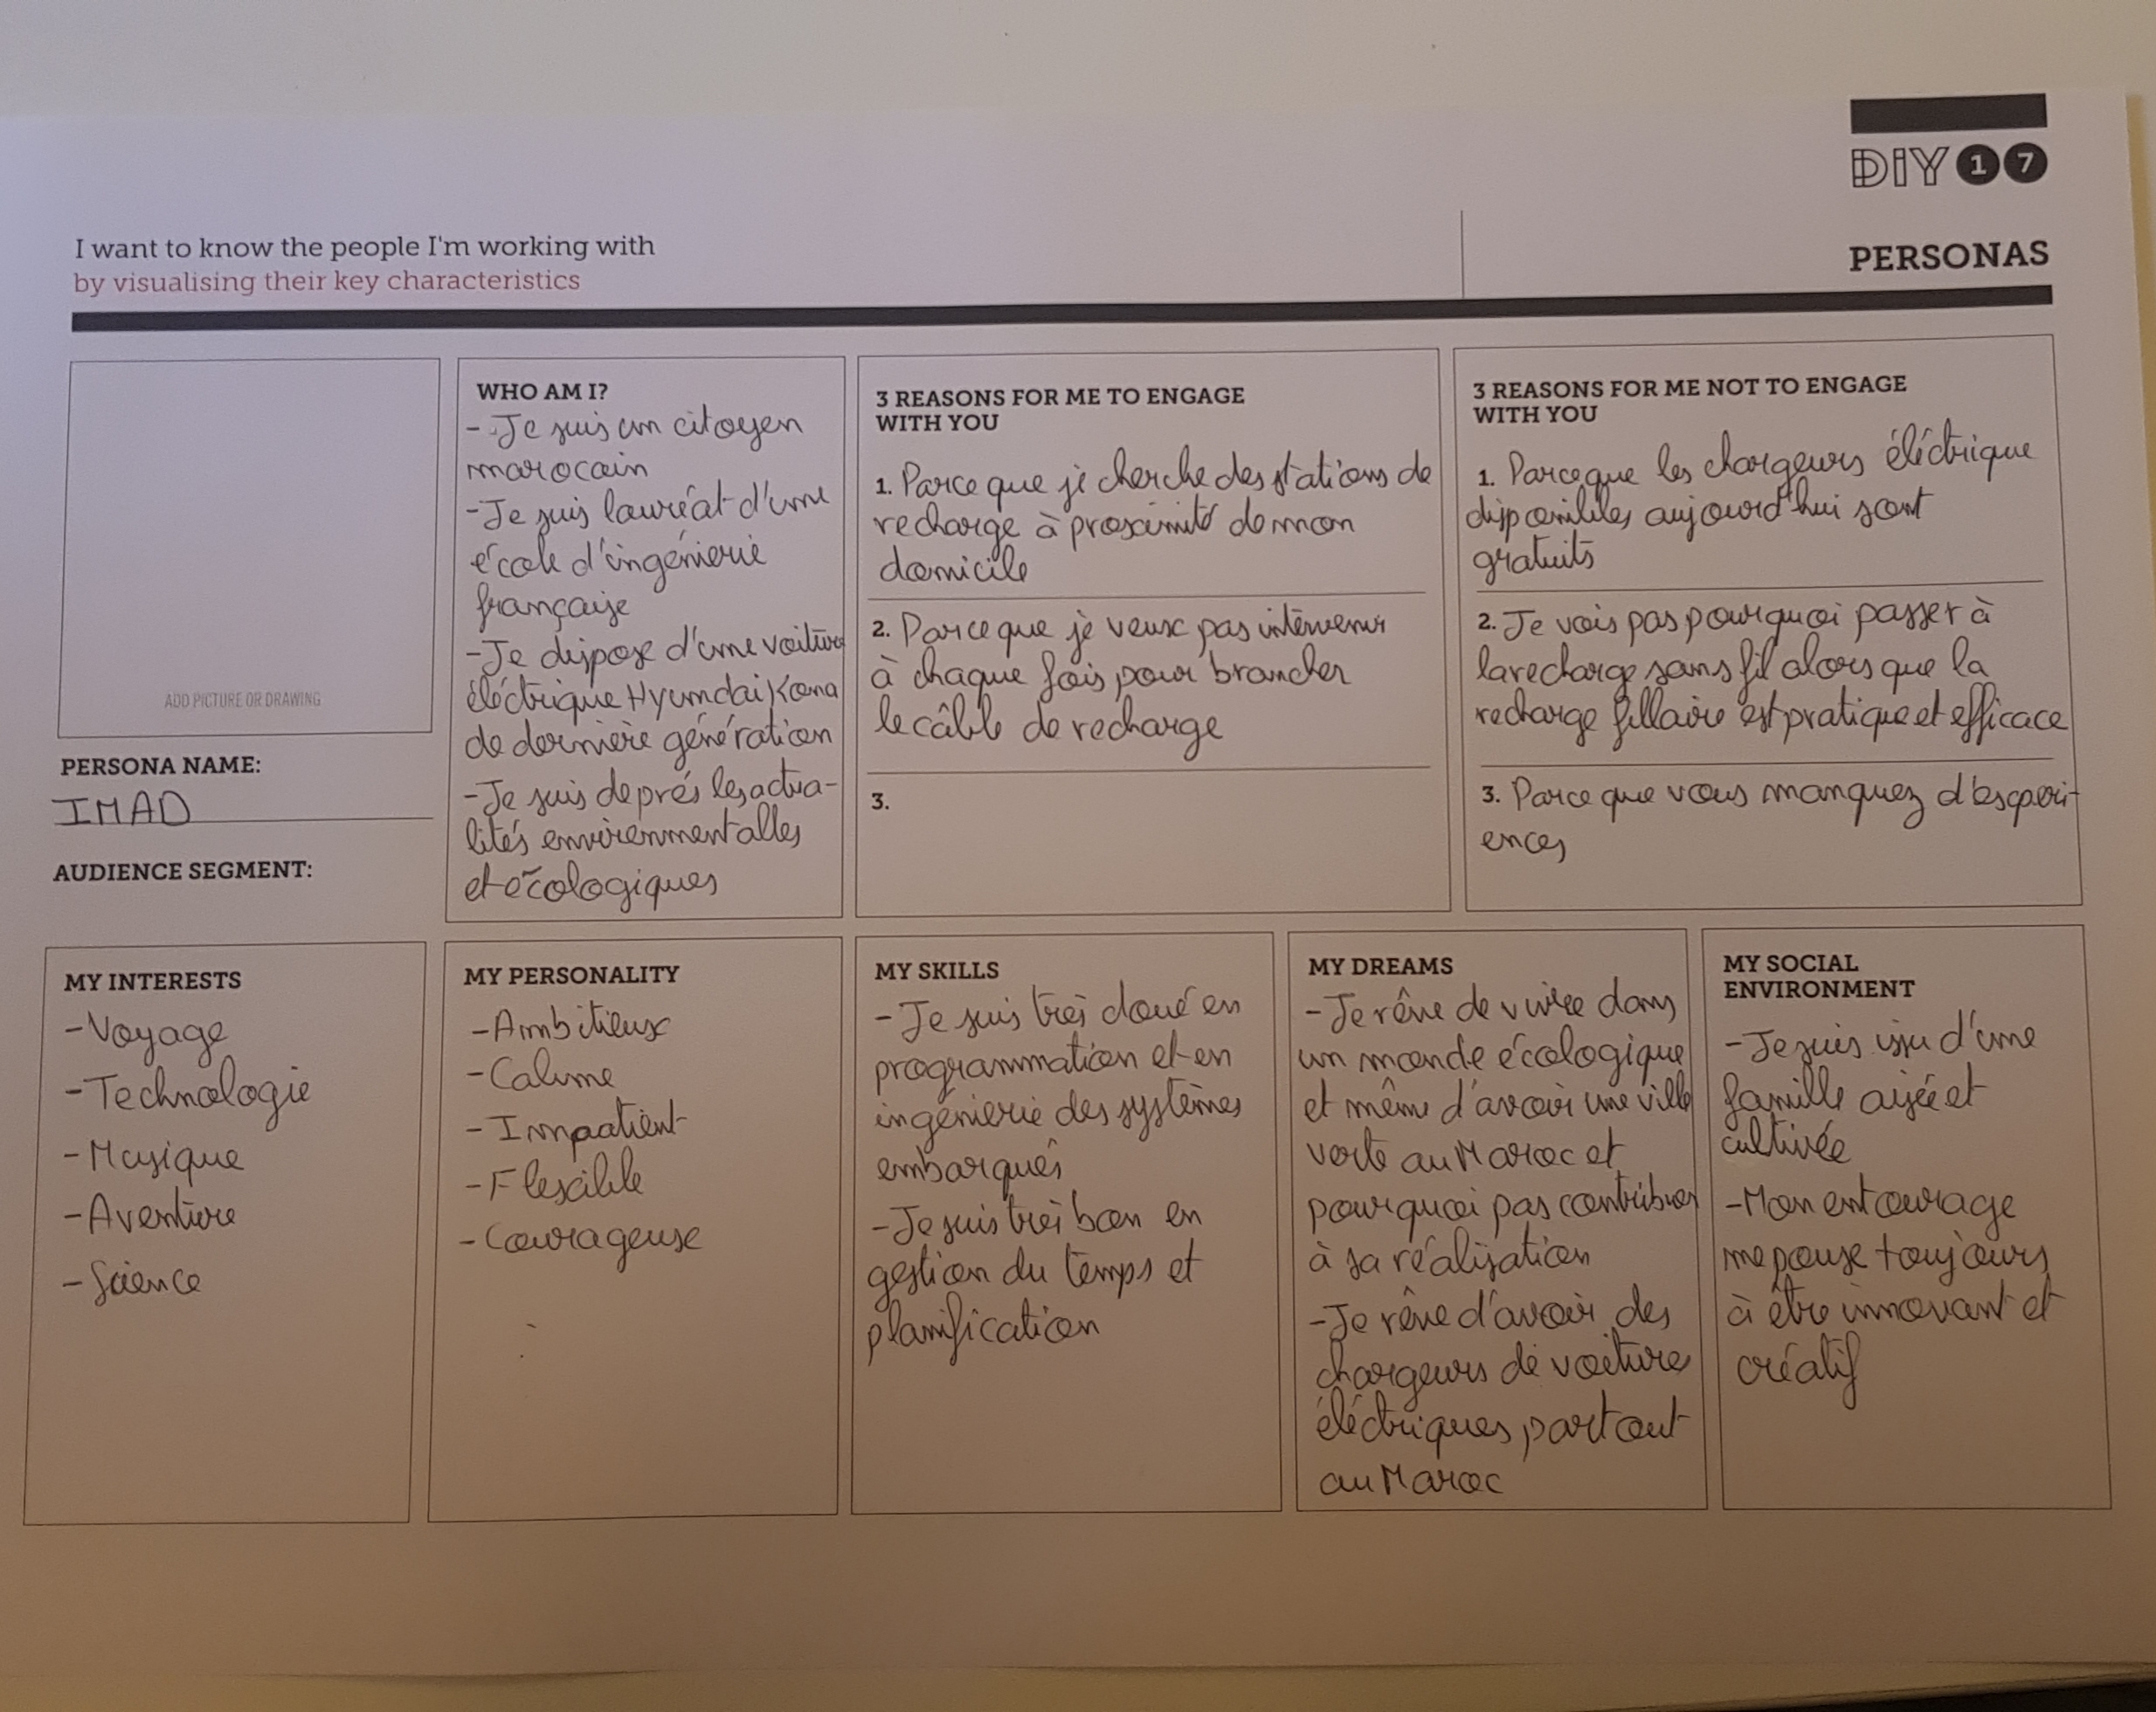 DIY 1 7
I want to know the people I'm working with
by visualising their key characteristics
PERSONAS
ADD PICTURE OR DRAWING
PERSONA NAME:
IMAD
AUDIENCE SEGMENT:
WHO AM I?
- Je suis un citoyen
marocain
- Je suis lauréat d'une
école d'ingénierie
française
- Je dispose d'une voiture
éléctrique Hyundai Kona
de dernière génération
- Je suis de prés les actua-
lités environnmentalles
et écologiques
3 REASONS FOR ME TO ENGAGE
WITH YOU
1. Parce que je cherche des stations de
recharge à proximité de mon
domicile
2. Parce que je veux pas intervenir
à chaque fois pour brancher
le câble de recharge
3.
3 REASONS FOR ME NOT TO ENGAGE
WITH YOU
1. Parceque les chargeurs éléctrique
disponibles aujourd'hui sont
gratuits
2. Je vois pas pourquoi passer à
la recharge sans fil alors que la
recharge fillaire est pratique et efficace
3. Parce que vous manquez d'experi-
ences
MY INTERESTS
- Voyage
- Technologie
- Musique
- Aventure
- Science
MY PERSONALITY
- Ambitieux
- Calme
- Impatient
- Flexible
- Courageuse
MY SKILLS
- Je suis très doué en
programmation et en
ingénierie des systèmes
embarqués
- Je suis très bon en
gestion du temps et
planification
MY DREAMS
- Je rêve de vivre dans
un monde écologique
et même d'avoir une ville
verte au Maroc et
pourquoi pas contribuer
à sa réalisation
- Je rêve d'avoir des
chargeurs de voitures
éléctriques partout
au Maroc
MY SOCIAL
ENVIRONMENT
- Je suis issu d'une
famille aisée et
cultivée
- Mon entourage
me pousse toujours
à être innovant et
créatif